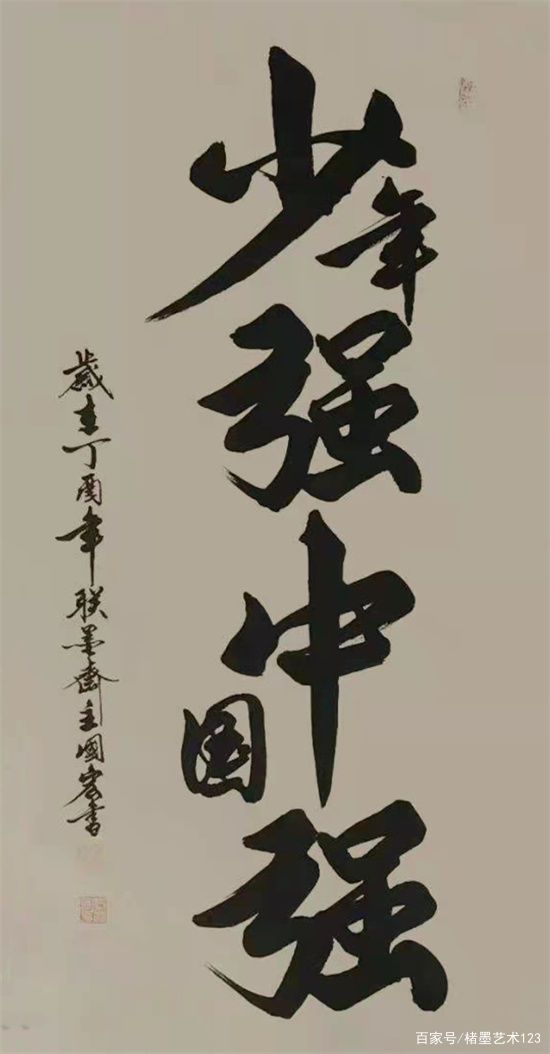 少年强中国强
歲在丁酉年联墨齋主國宏書
百家号/楮墨艺术123